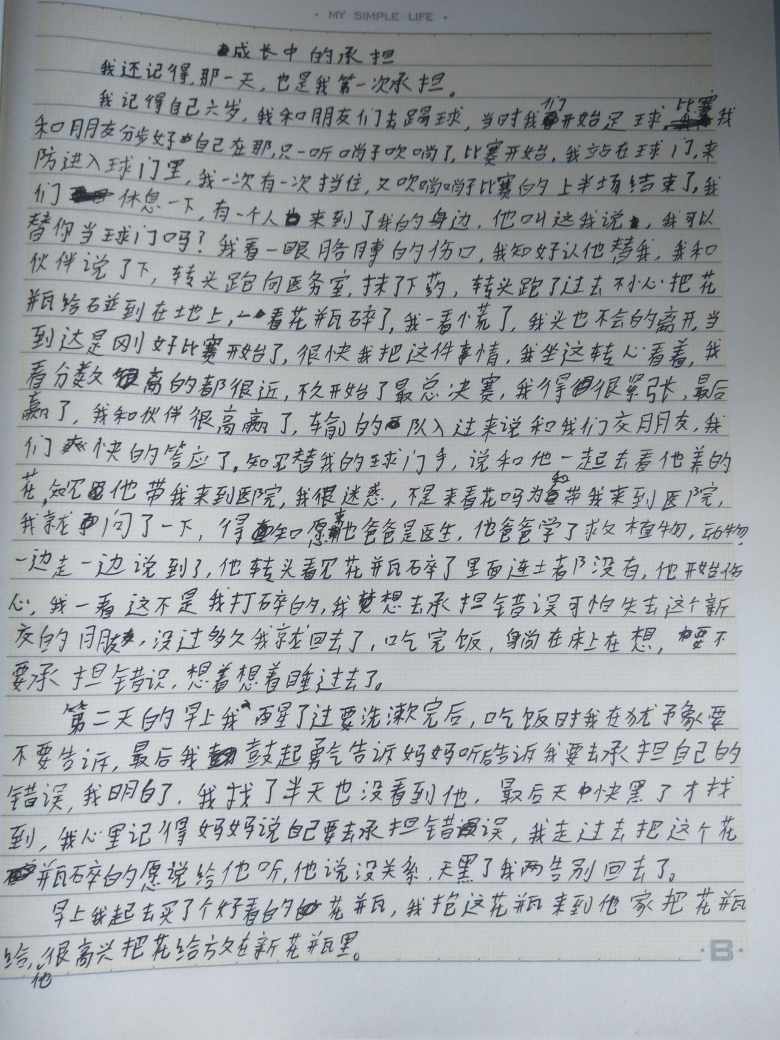 · MY SIMPLE LIFE ·
成长中的承担
我还记得,那一天,也是我第一次承担。
我记得自己六岁,我和朋友们去踢球,当时我们开始足球,比赛我
和朋友分步好自己在那,只一听哨子吹响了,比赛开始,我站在球门,来
防进入球门里,我一次有一次挡住,又吹响哨子比赛的上半场结束了,我
们休息一下,有一个人来到了我的身边,他叫这我说,我可以
替你当球门吗?我看一眼胳膊的伤口,我知好认他替我,我和
伙伴说了下,转头跑向医务室,抹了下药,转头跑了过去不小心把花
瓶给碰到在地上,一看花瓶碎了,我一看个慌了,我头也不会的离开,当
到达是刚好比赛开始了,很快我把这件事情,我坐这转心看着,我
看分数很高的都很近,不久开始了最总决赛,我得很紧张,最后
赢了,我和伙伴很高赢了,输的队入过来说和我们交朋友,我
们快的答应了。知不替我的球门手,说和他一起去看他养的
花,他带我来到医院,我很迷惑,不是来看花吗为和带我来到医院,
我就问了一下,得知愿事他爸爸是医生,他爸爸学了救植物,动物,
一边走一边说到了,他转头看见花瓶碎了里面连土者都没有,他开始伤
心,我一看这不是我打碎的,我想去承担错误可怕失去这个新
交的朋友,没过多久我就回去了,吃完饭,躺尚在床上在想,要不
要承担错识,想着想着睡过去了。
第二天的早上我醒了过要洗漱完后,吃饭时我在犹予象要
不要告诉,最后我鼓起勇气告诉妈妈听告诉我要去承担自己的
错误,我明白了,我找了半天也没看到他,最后天快黑了才找
到,我心里记得妈妈说自己要去承担错误,我走过去把这个花
瓶碎的愿说给他听,他说没关系,天黑了我两告别回去了。
早上我起去买了个好看的花瓶,我抱这花瓶来到他家把花瓶
给他,很高兴把花给放在新花瓶里。
·B·